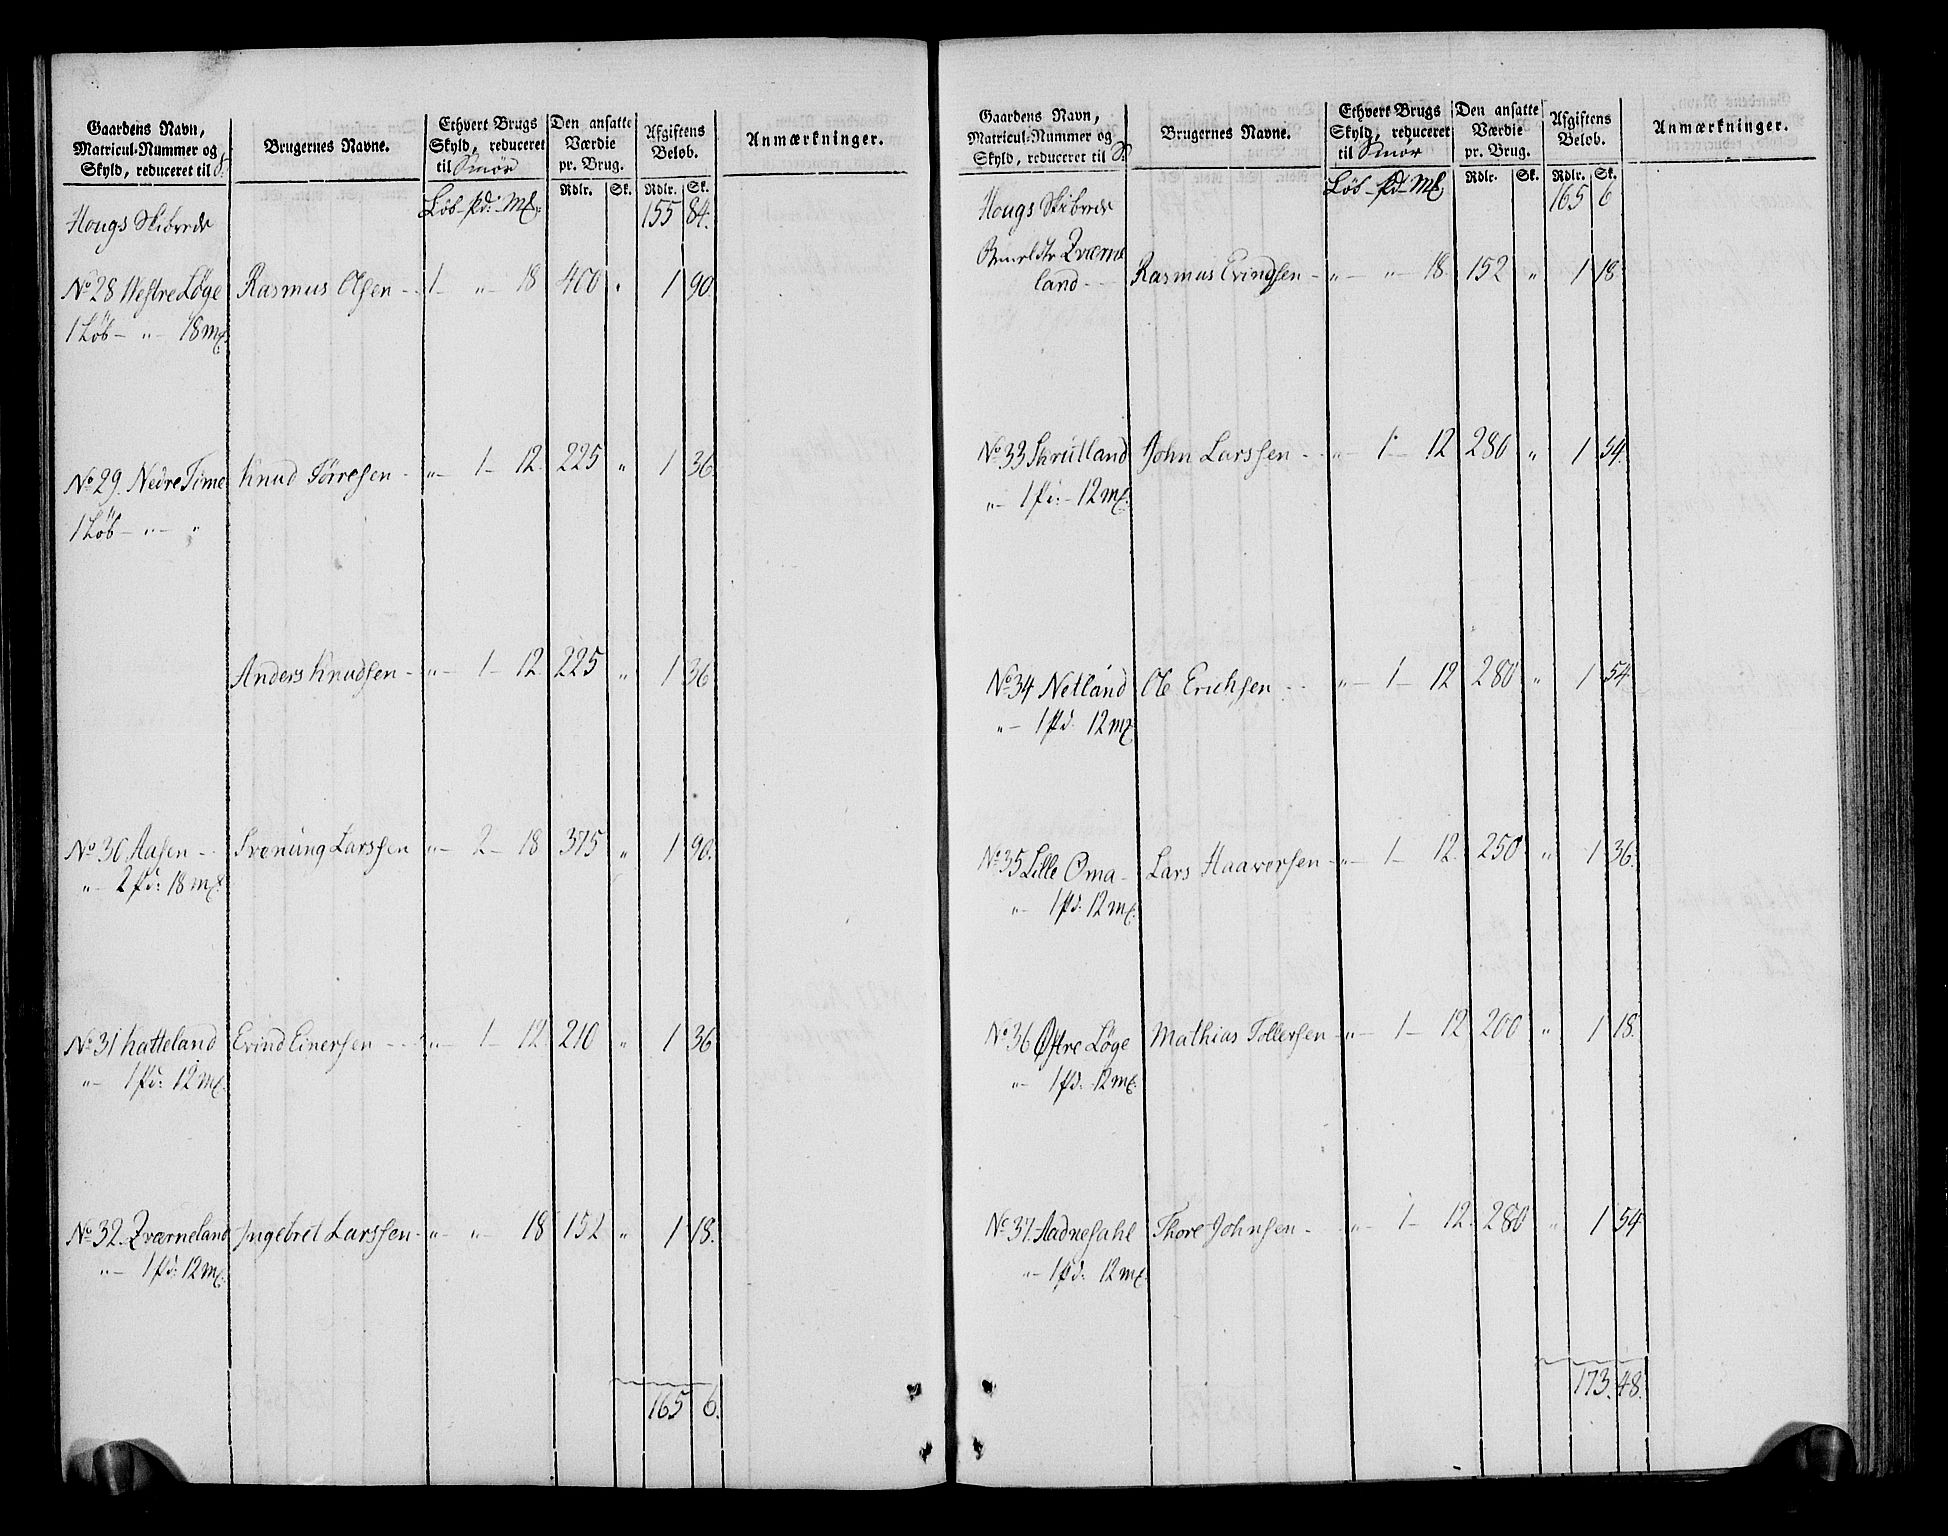 Gaardens Navn,
Matricul-Nummer og
Skyld, reduceret til S.
Brugernes Navne.
Ethvert Brugs
Skyld, reduceret
til Smør
Den ansatte
Værdie
pr. Brug.
Afgiftens
Beløb.
Anmærkninger.
Løb – pd: – Mk. Rdlr. Sk. Rdlr. Sk.
Hougs Skibrede 155 84.
No 28 Westre Løge Rasmus Olsen – 1 – " – 18 400 " 1 90.
1 Løb – " – 18 mk.
No 29. Nedre Time Knud Tørresen – " – 1 – 12. 225 " 1 36.
1 Løb – " – "
Anders Knudsen – " – 1 – 12. 225 " 1 36
No 30 Aasen – Svenung Larssen " – 2 – 18 375 " 1 90.
" – 2 pd: 18 mk.
No 31 Hatteland Evind Einersen – " – 1 – 12 210 " 1 36
" – 1 pd: 12 mk.
No 32. Qværneland Ingebret Larssen – " – " – 18 152 " 1 18.
" – 1 pd: 12 mk.
165 6.
Gaardens Navn,
Matricul-Nummer og
Skyld, reduceret til S.
Brugernes Navne.
Ethvert Brugs
Skyld, reduceret
til Smør
Den ansatte
Værdie
pr. Brug.
Afgiftens
Beløb.
Anmærkninger.
Løb – pd – Mk. Rdlr. Sk. Rdlr. Sk.
Hougs Skibrede 165 6
Qværne
land – Rasmus Evindsen – " – " – 18 152 " 1 18
No 33 Skrutland John Larssen – " – 1 – 12 280 " 1 54.
" – 1 pd: – 12 mk.
No 34 Netland Ole Erichsen – " – 1 – 12 280 " 1 54.
" – 1 pd. 12 mk
No 35 Lille Oma – Lars Haaversen – " – 1 – 12. 250 " 1 36.
" – 1 pd. 12 mk.
No 36 Østre Løge Mathias Tollersen – " – 1 – 12 200 " 1 18.
" – 1 pd. 12 mk.
No 37. Aadnesahl Thore Johnsen – " – 1 – 12. 280 " 1 54
" – 1 pd. 12 mk.
173. 48.